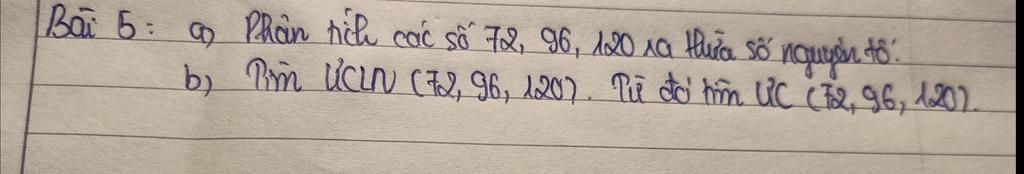 Bài 5: a) Phân tích các số 72, 96, 120 ra thừa số nguyên tố.
b) Tìm ƯCLN (72, 96, 120). Từ đó tìm ƯC (72, 96, 120).